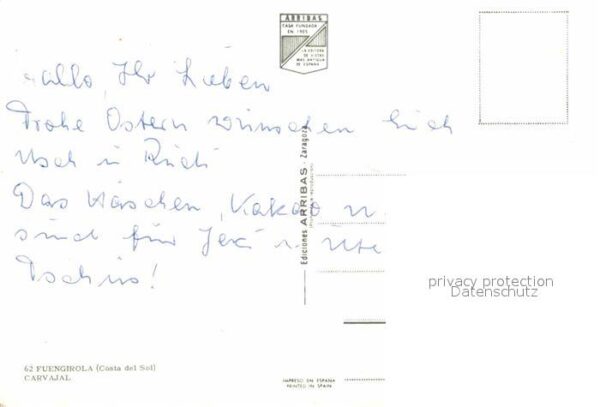 ARRIBAS
CASA FUNDADA
EN 1905
LA EDITORA
DE VISTAS
MAS ANTIGUA
DE ESPAÑA
Hallo, Ihr Lieben
Frohe Ostern wünschen Euch
Usch u Rudi
Das Häschen, Kakao u.
sind für Jexi u. Ute
Tschüs!
Ediciones ARRIBAS - Zaragoza
privacy protection
Datenschutz
62 FUENGIROLA (Costa del Sol)
CARVAJAL
IMPRESO EN ESPAÑA
PRINTED IN SPAIN